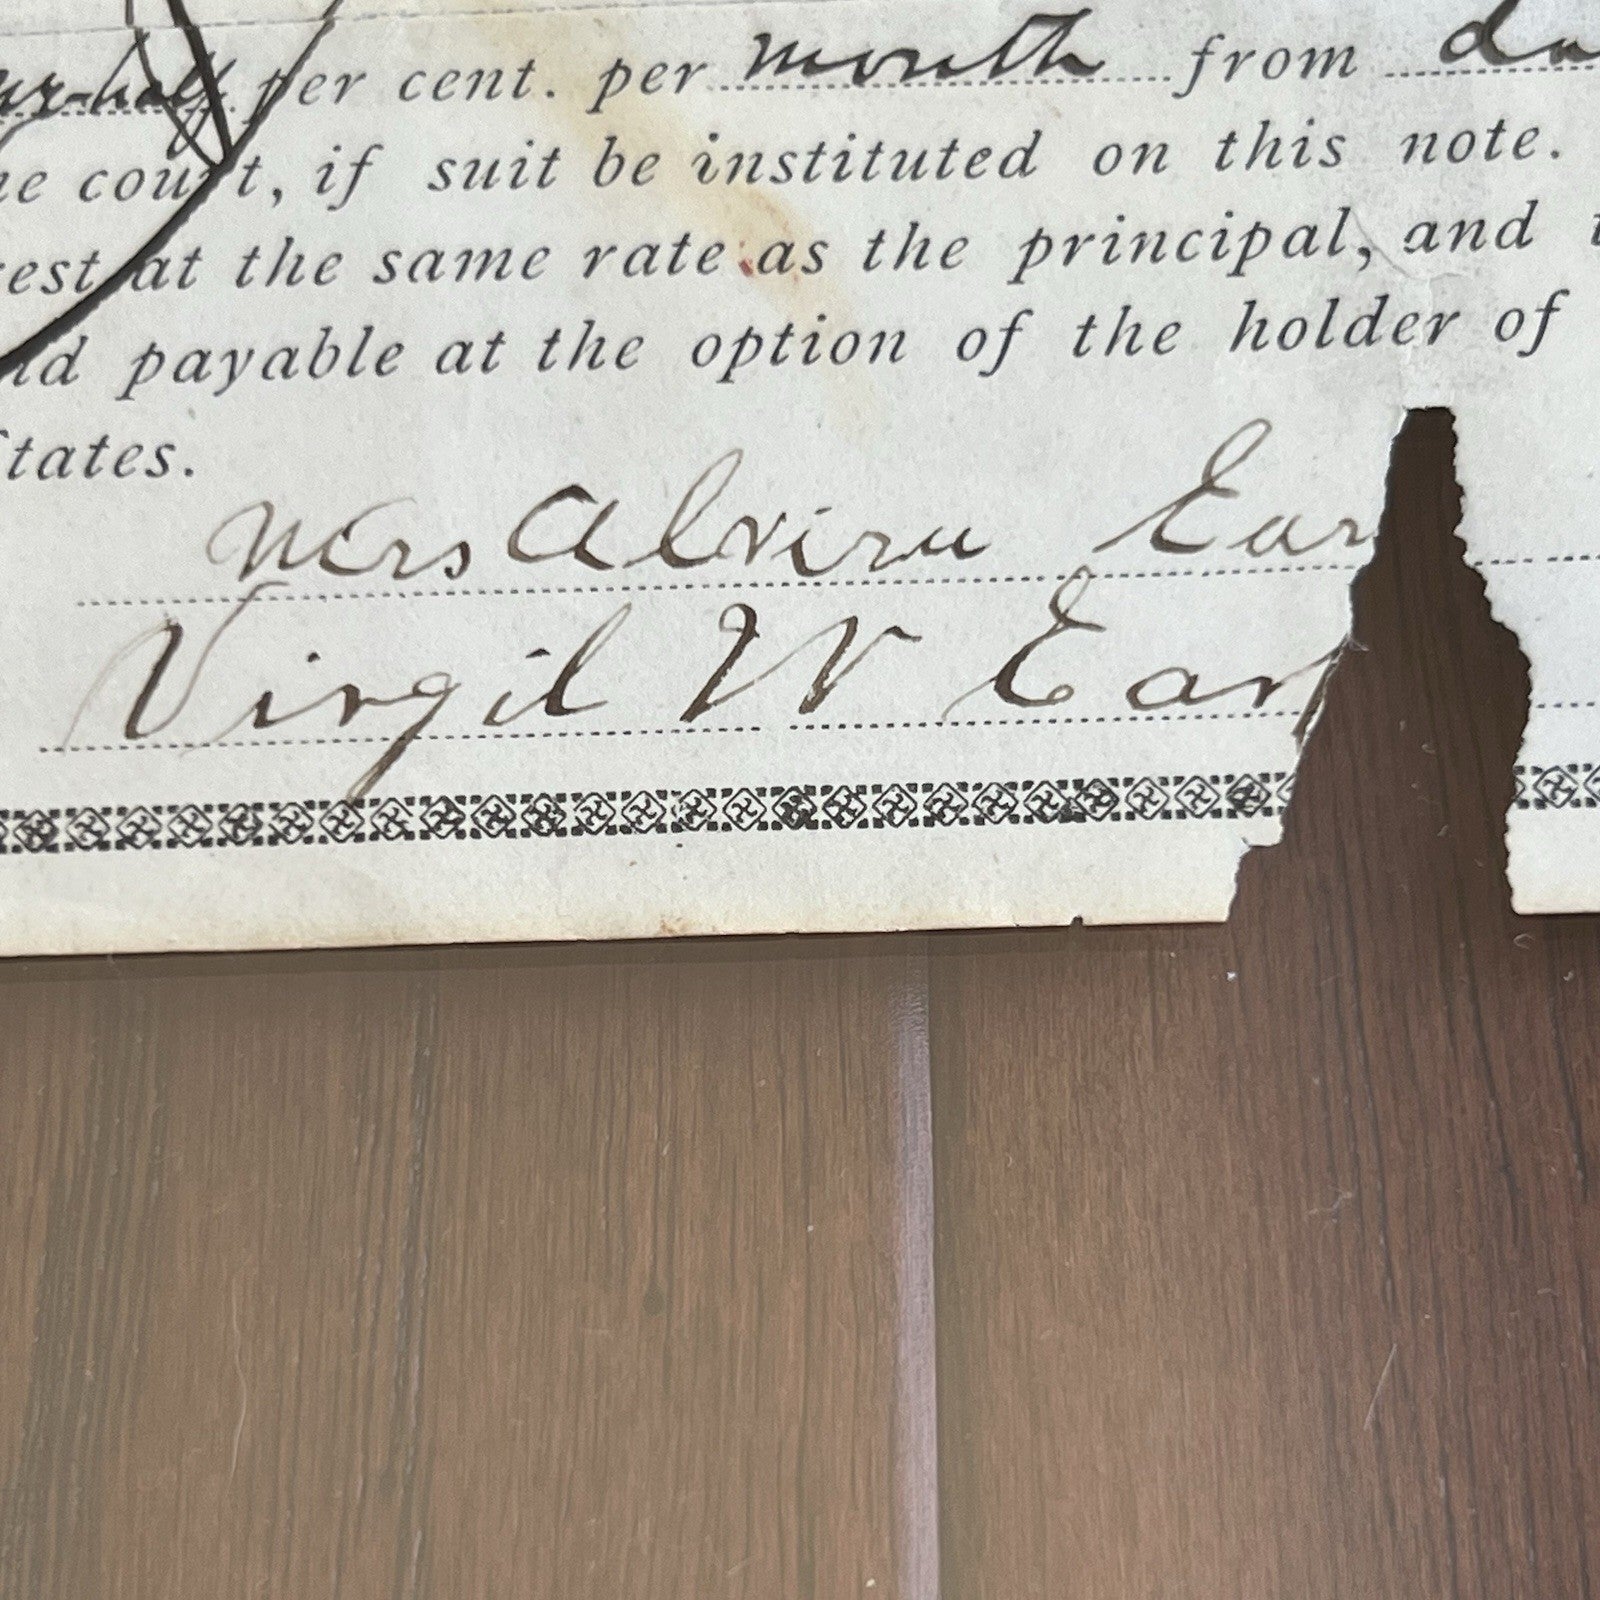 per cent. per month from da
he court, if suit be instituted on this note.
rest at the same rate as the principal, and
nd payable at the option of the holder of
States.
Mrs Alvira Ear
Virgil W Ear